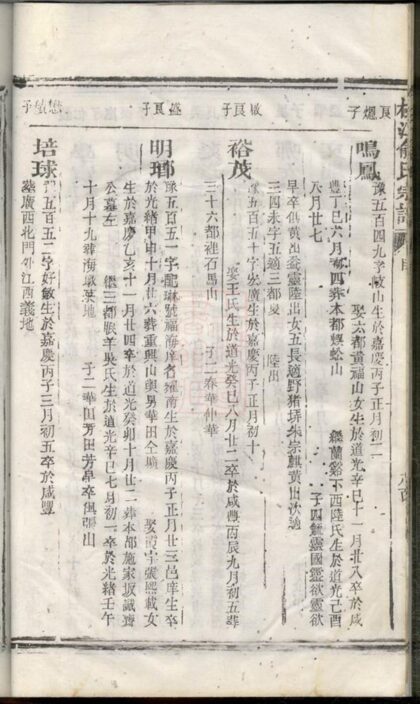 良燿子
鳴鳳
豫五百四九字岐山生於嘉慶丙子正月初二
娶六都黃福山女生於道光辛巳十一月廿八卒於咸
豐丁巳六月初四葬本都螟蚣山
繼蘭谿下西陸氏生於道光己酉
八月廿七
子四毓靈國靈歆靈歆
早卒俱黃出益靈陸出女五長適野豬垪朱宗麒黃出次適
三四未字五適三都夏
陸出
敏良子
裕茂
豫五百五十字宏廣生於嘉慶丙子正月初十
娶王氏生於道光癸巳八月廿二卒於咸豐丙辰九月初五葬
三十六都裡石馬山
子二春華仲華
盛良子
明瑯
豫五百五一字配琳號福海庠名耀南生於嘉慶丙子正月廿三邑庠生卒
於光緒甲申十月廿六葬重興山與男華田仝壙
娶張熙載女
生於嘉慶乙亥十一月廿四卒於道光癸卯十月廿二葬本都施家坂識齋
公墓左
繼三都吳氏生於道光辛巳七月初一卒於光緒壬午
十月十九葬海墩基地
子二華田芳田芳早卒俱張出
懋敏子
培球
豫五百五二字好敏生於嘉慶丙子三月初五卒於咸豐
葬廣西北門外江西義地